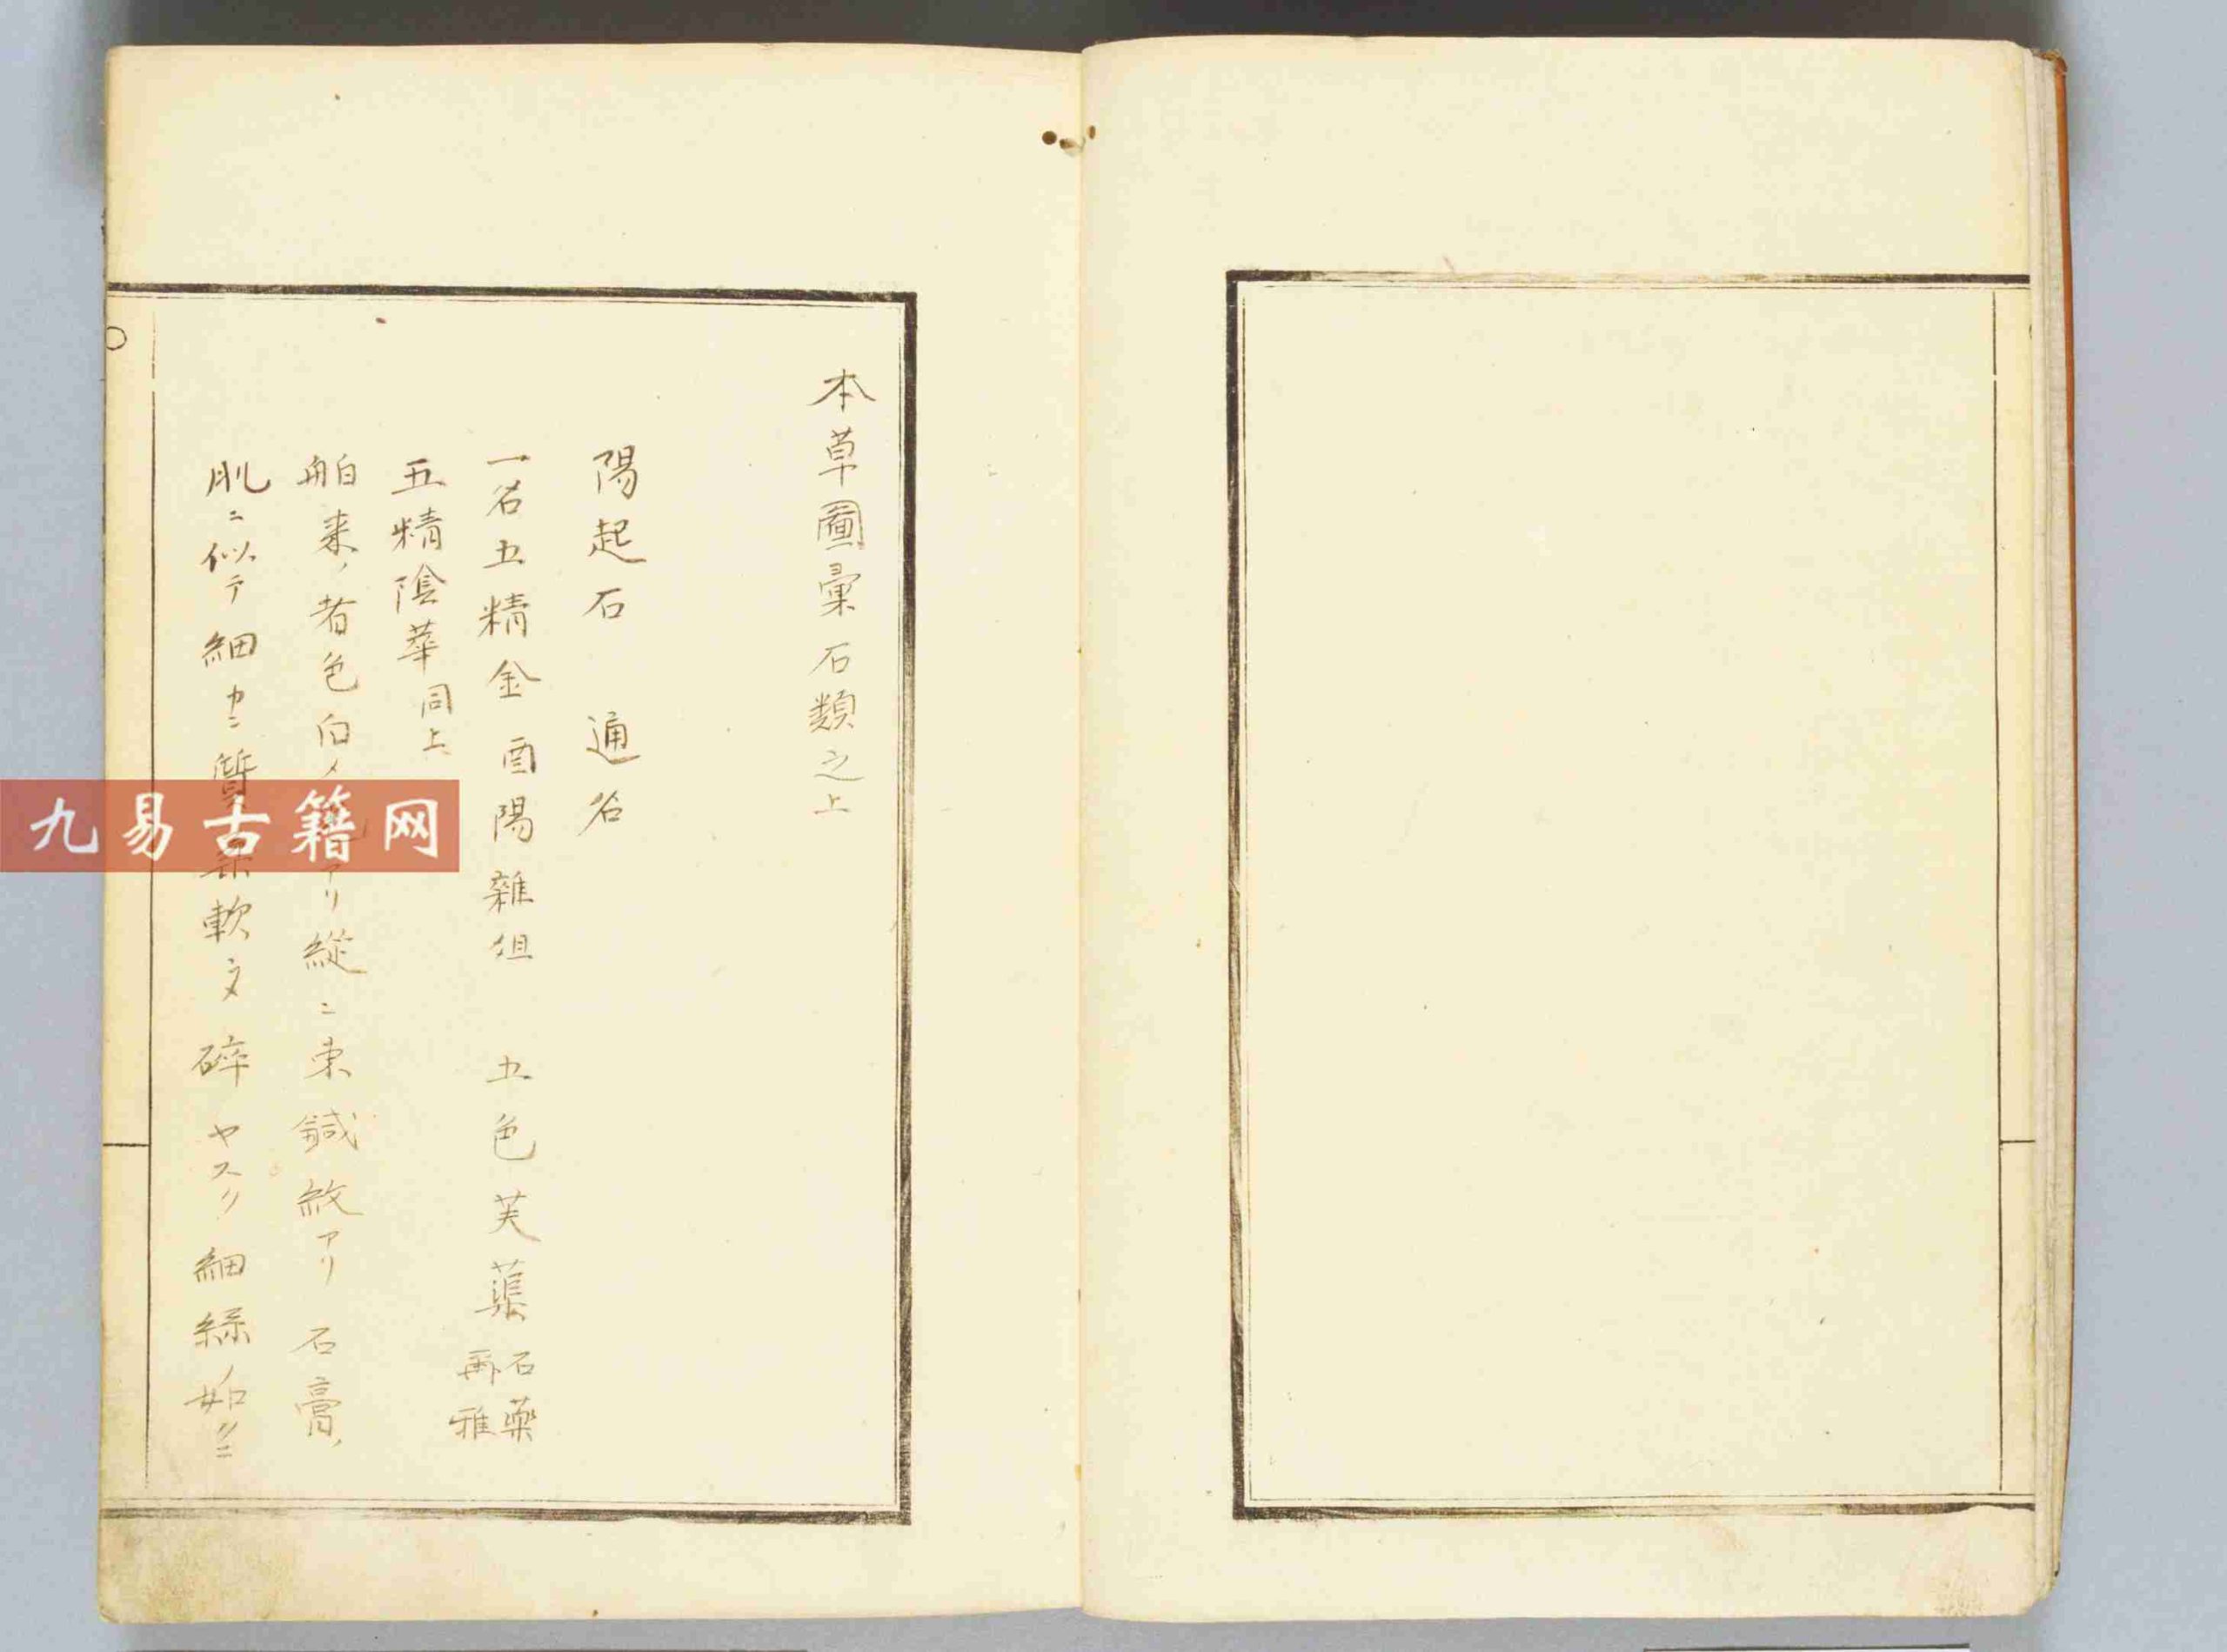 本草圖彙石類之上
陽起石 通名
一名五精金 酉陽雜俎 五色芙蕖 石藥爾雅
五精陰華 同上
舶来ノ者色白メアリ縱ニ束鍼紋アリ石膏ノ
肌ニ似テ細カニ質柔軟ニ〆碎ヤスク細絲ノ如クニ
九易古籍网